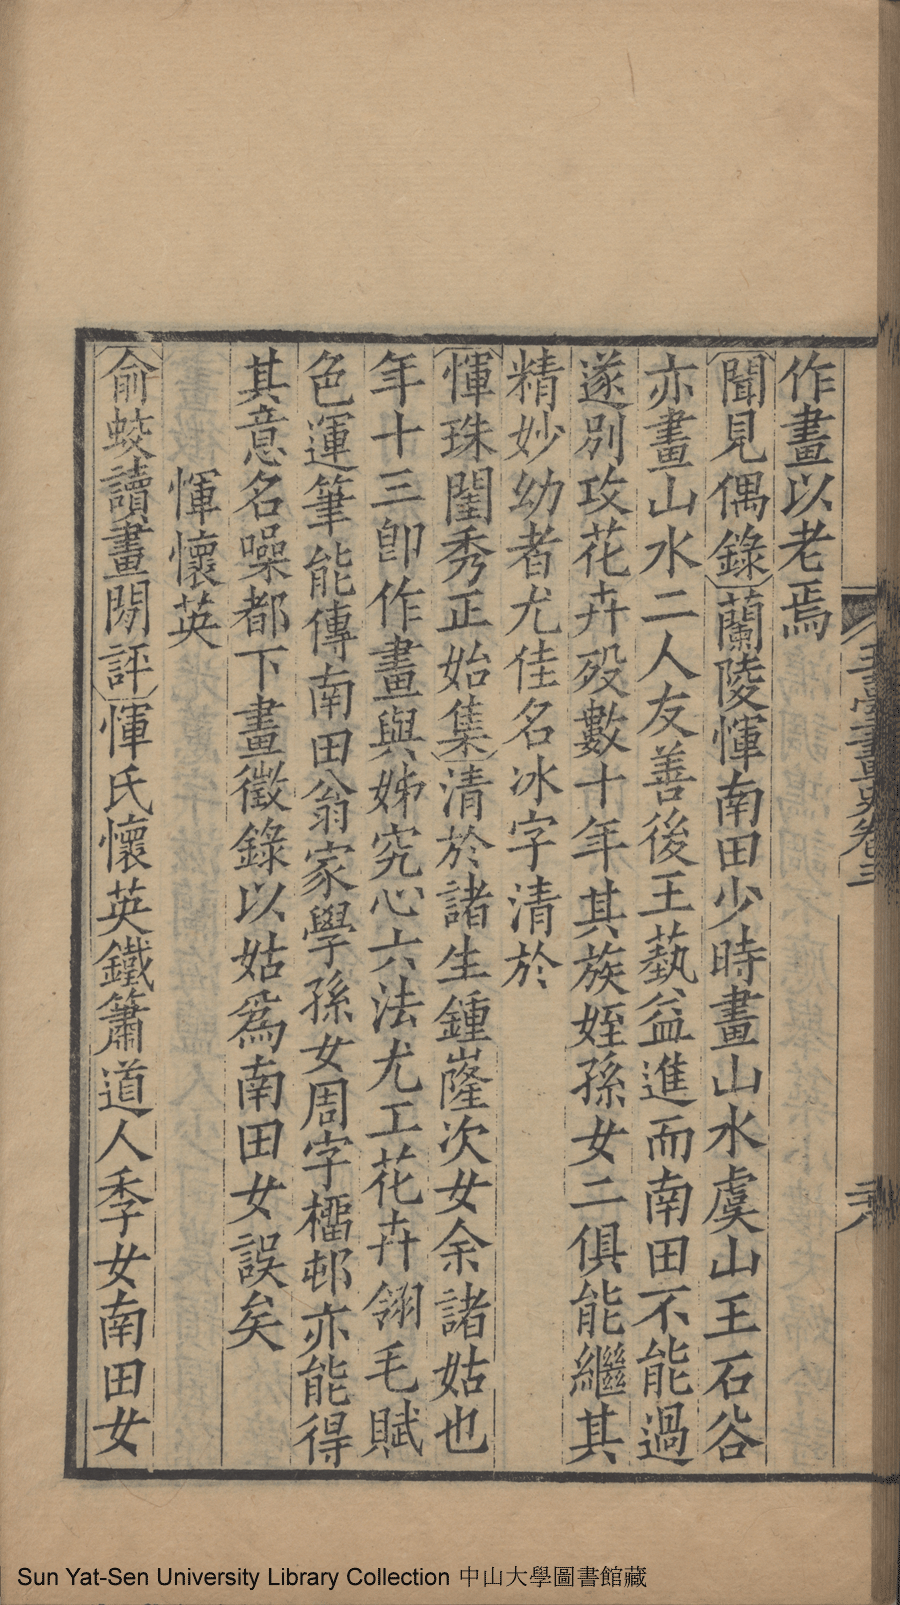 作畫以老焉
聞見偶錄蘭陵惲南田少時畫山水虞山王石谷
亦畫山水二人友善後王藝益進而南田不能過
遂別攻花卉歿數十年其族姪孫女二俱能繼其
精妙幼者尤佳名冰字清於
惲珠閨秀正始集清於諸生鍾嶐次女余諸姑也
年十三卽作畫與姊究心六法尤工花卉翎毛賦
色運筆能傳南田翁家學孫女周字橊邨亦能得
其意名噪都下畫徵錄以姑爲南田女誤矣
惲懷英
俞蛟讀畫閒評惲氏懷英鐵簫道人季女南田女
玉臺畫史卷三
Sun Yat-Sen University Library Collection 中山大學圖書館藏